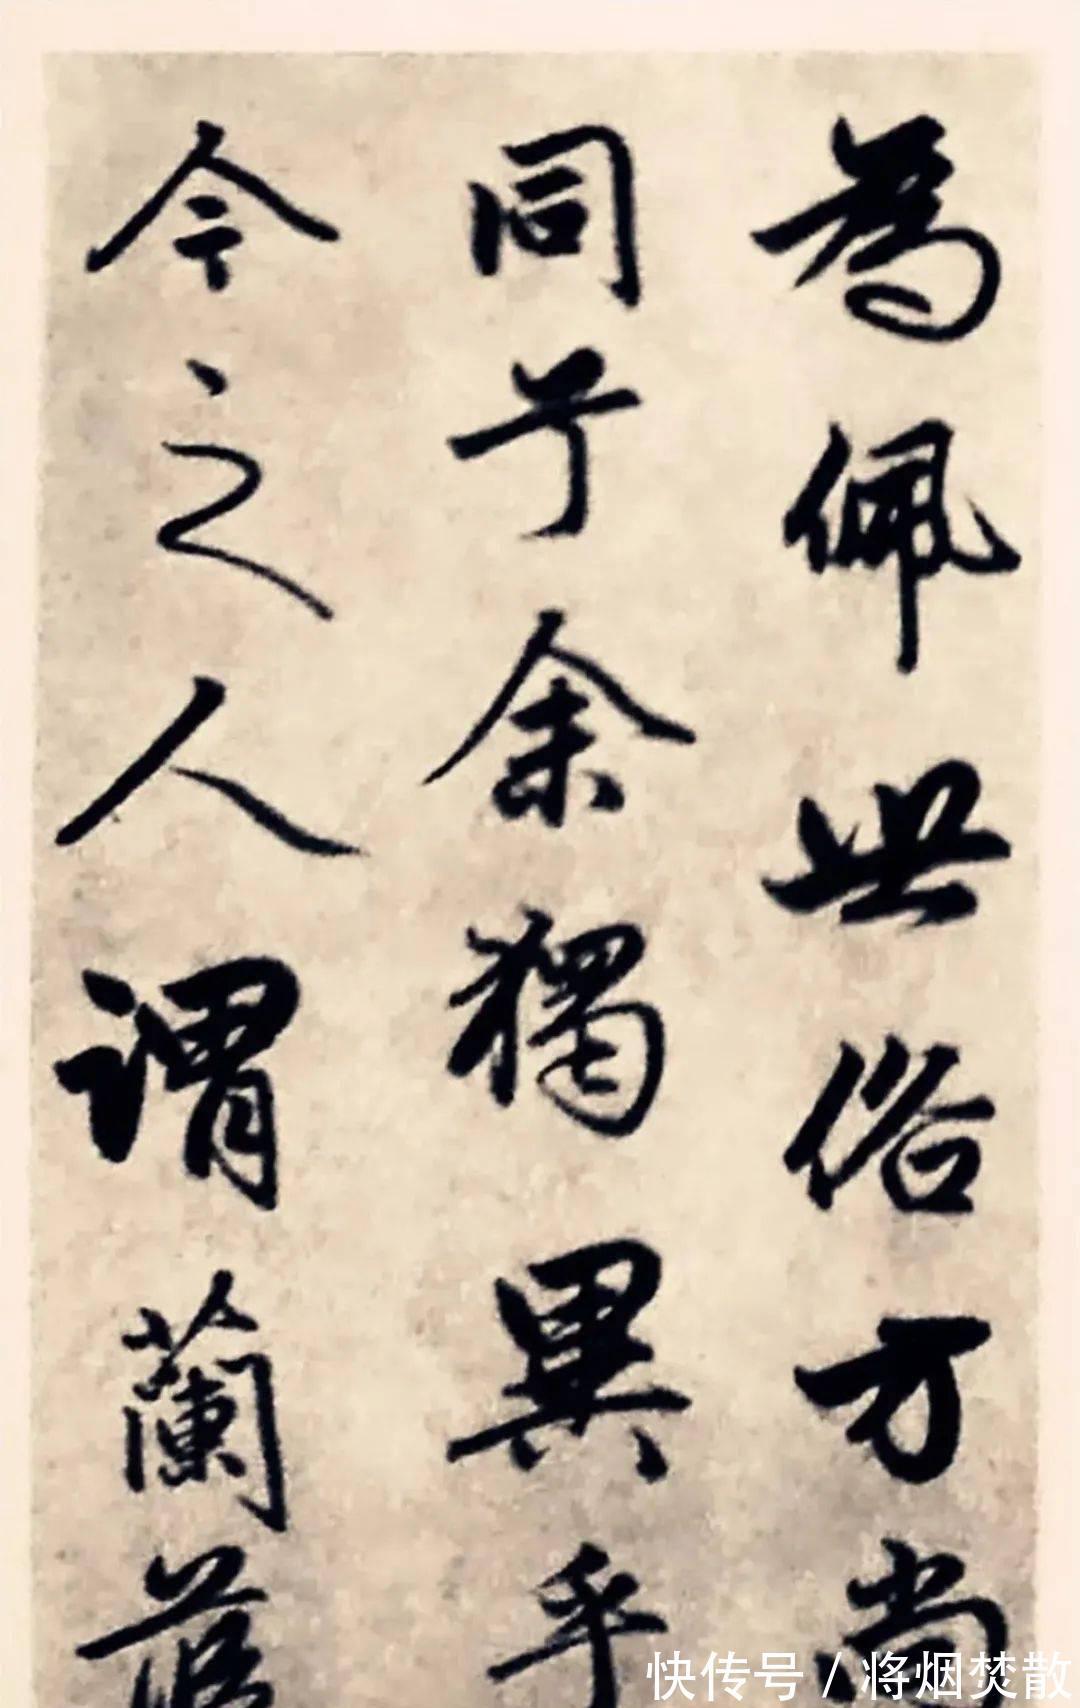 為佩世俗方尚
同兮余獨異乎
今之人謂蘭
快传号 / 将烟焚散